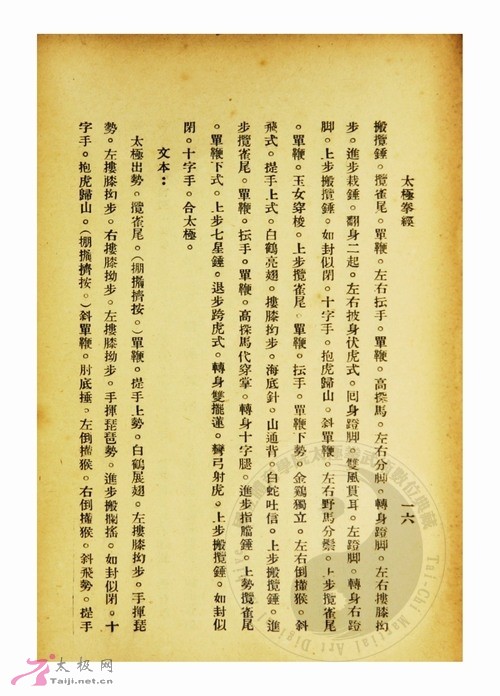 太極拳經
一六
搬攬錘。攬雀尾。單鞭。左右抎手。單鞭。高探馬。左右分脚。轉身蹬脚。左右摟膝抝
步。進步栽錘。翻身二起。左右披身伏虎式。囘身蹬脚。雙風貫耳。左蹬脚。轉身右蹬
脚。上步搬攬錘。如封似閉。十字手。抱虎歸山。斜單鞭。左右野馬分鬃。上步攬雀尾
。單鞭。玉女穿梭。上步攬雀尾。單鞭。抎手。單鞭下勢。金鷄獨立。左右倒攆猴。斜
飛式。提手上式。白鶴亮翅。摟膝抝步。海底針。山通背。白蛇吐信。上步搬攬錘。進
步攬雀尾。單鞭。抎手。單鞭。高探馬代穿掌。轉身十字腿。進步指膅錘。上勢攬雀尾
。單鞭下式。上步七星錘。退步跨虎式。轉身雙擺蓮。彎弓射虎。上步搬攬錘。如封似
閉。十字手。合太極。
文本：
太極出勢。攬雀尾。（掤攦擠按。）單鞭。提手上勢。白鶴展翅。左摟膝抝步。手揮琵
琶勢。左摟膝抝步。右摟膝抝步。左摟膝抝步。手揮琵琶勢。進步搬攔搖。如封似閉。十
字手。抱虎歸山。（掤攦擠按。）斜單鞭。肘底捶。左倒攆猴。右倒攆猴。斜飛勢。提手
太极网
Taiji.net.cn
Tai-Chi Martial Art Digi